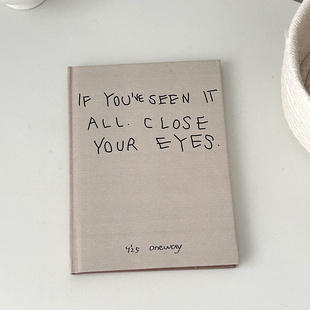 IF YOU'VE SEEN IT
ALL. CLOSE
YOUR EYES.
425 oneway